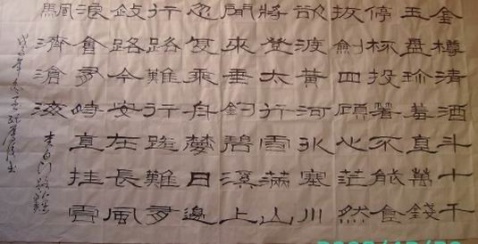 金樽清酒斗十千
玉盤珍羞直萬錢
停杯投箸不能食
拔劍四顧心茫然
欲渡黃河冰塞川
將登太行雪滿山
閒來垂釣碧溪上
忽復乘舟夢日邊
行路難行路難多
歧路今安在長風
浪會有時直挂雲
颿濟滄海
李白行路難